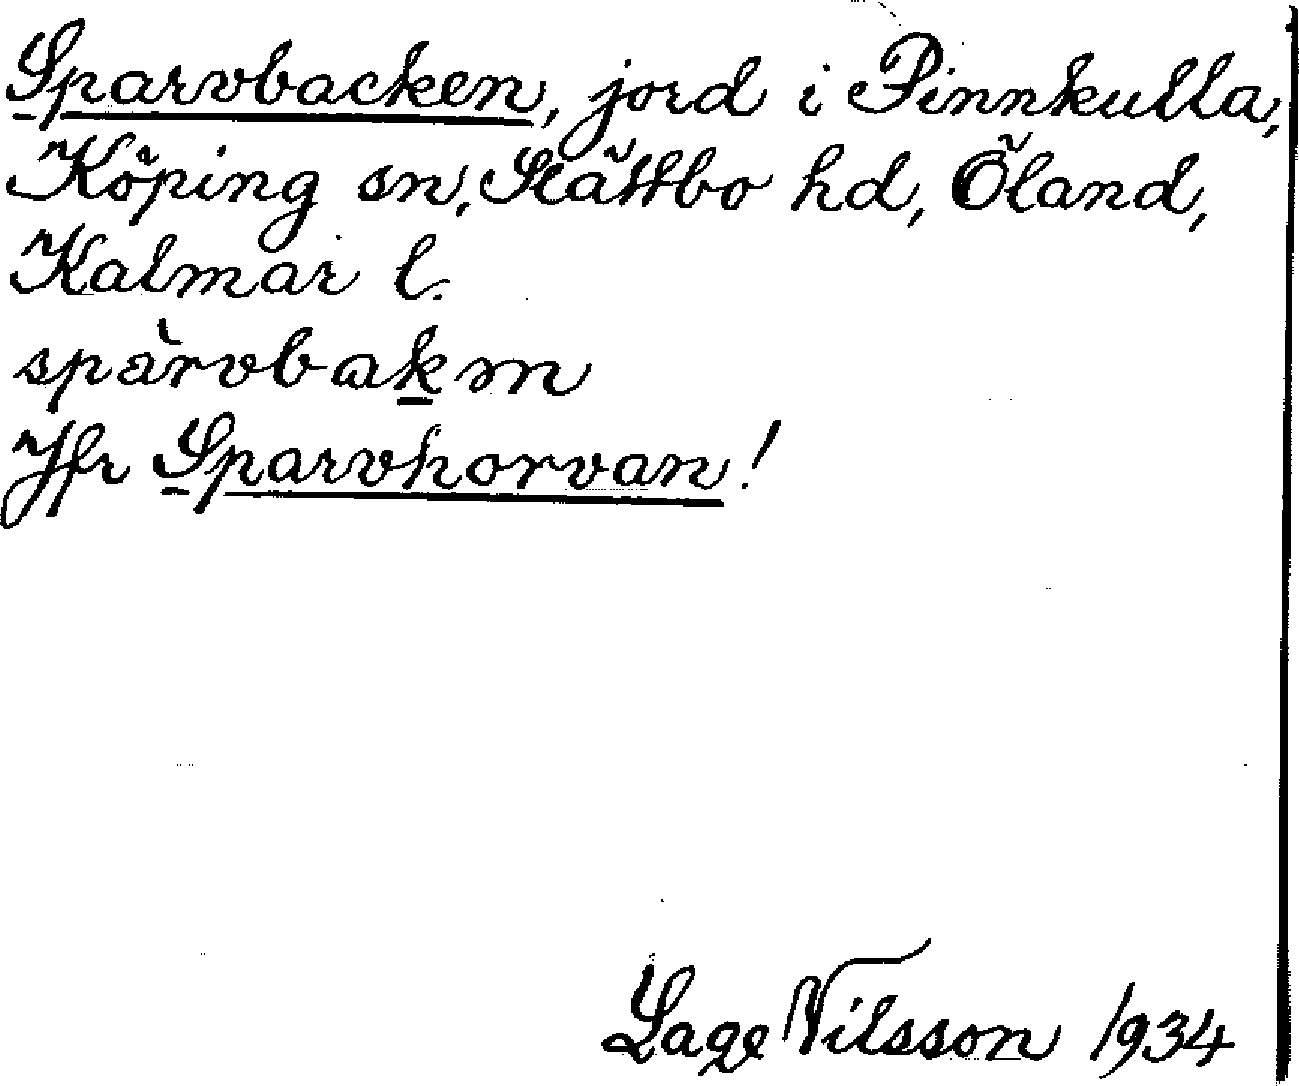 Sparvbacken, jord i Pinnkulla,
Köping sn, Slättbo hd, Öland,
Kalmar l.
spàrvbakm
Jfr Sparvhorvan!
Lage Nilsson 1934